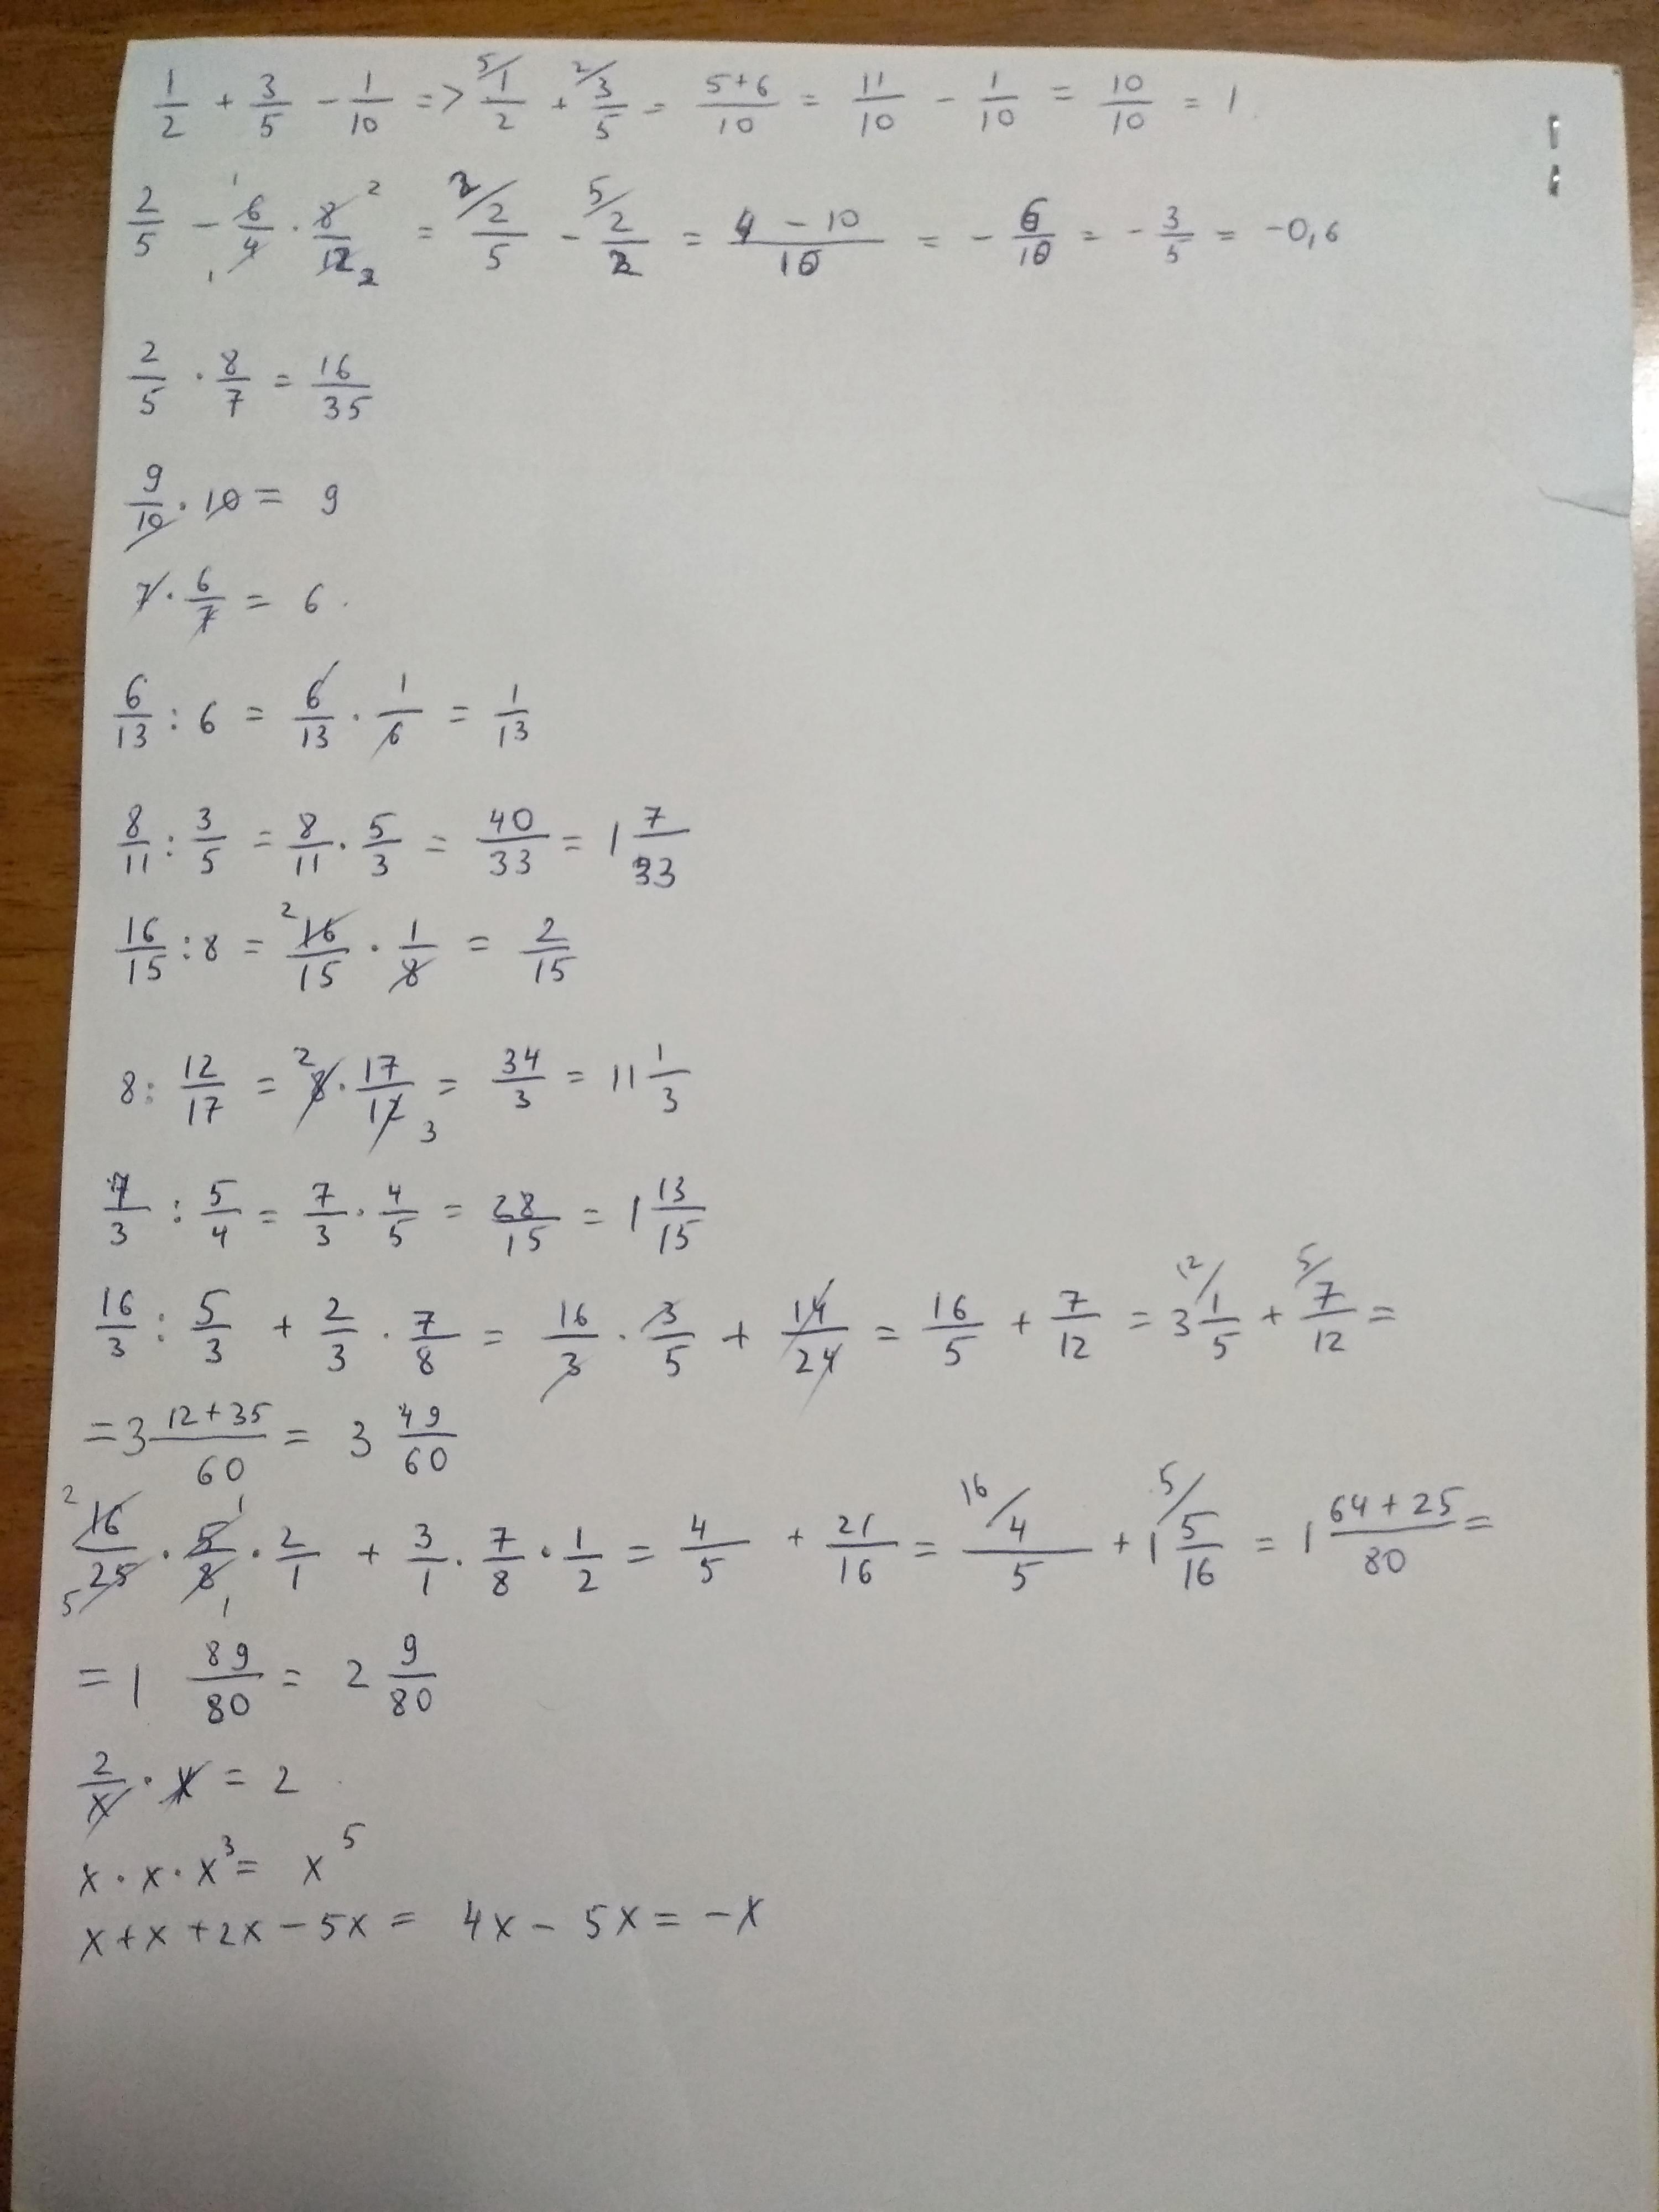 1/2 + 3/5 - 1/10 => 5/ 1/2 + 2/ 3/5 = (5+6)/10 = 11/10 - 1/10 = 10/10 = 1
2/5 - 6/4 · 8/12 = 2/ 2/5 - 5/ 2/2 = (4 - 10)/10 = - 6/10 = - 3/5 = -0,6
2/5 · 8/7 = 16/35
9/10 · 10 = 9
7 · 6/7 = 6
6/13 : 6 = 6/13 · 1/6 = 1/13
8/11 : 3/5 = 8/11 · 5/3 = 40/33 = 1 7/33
16/15 : 8 = 16/15 · 1/8 = 2/15
8 : 12/17 = 8 · 17/12 = 34/3 = 11 1/3
7/3 : 5/4 = 7/3 · 4/5 = 28/15 = 1 13/15
16/3 : 5/3 + 2/3 · 7/8 = 16/3 · 3/5 + 14/24 = 16/5 + 7/12 = 3 12/ 1/5 + 5/ 7/12 =
= 3 (12+35)/60 = 3 49/60
16/25 · 5/8 · 2/1 + 3/1 · 7/8 · 1/2 = 4/5 + 21/16 = 16/ 4/5 + 1 5/ 5/16 = 1 (64+25)/80 =
= 1 89/80 = 2 9/80
2/x · x = 2
x · x · x³ = x⁵
x + x + 2x - 5x = 4x - 5x = -x